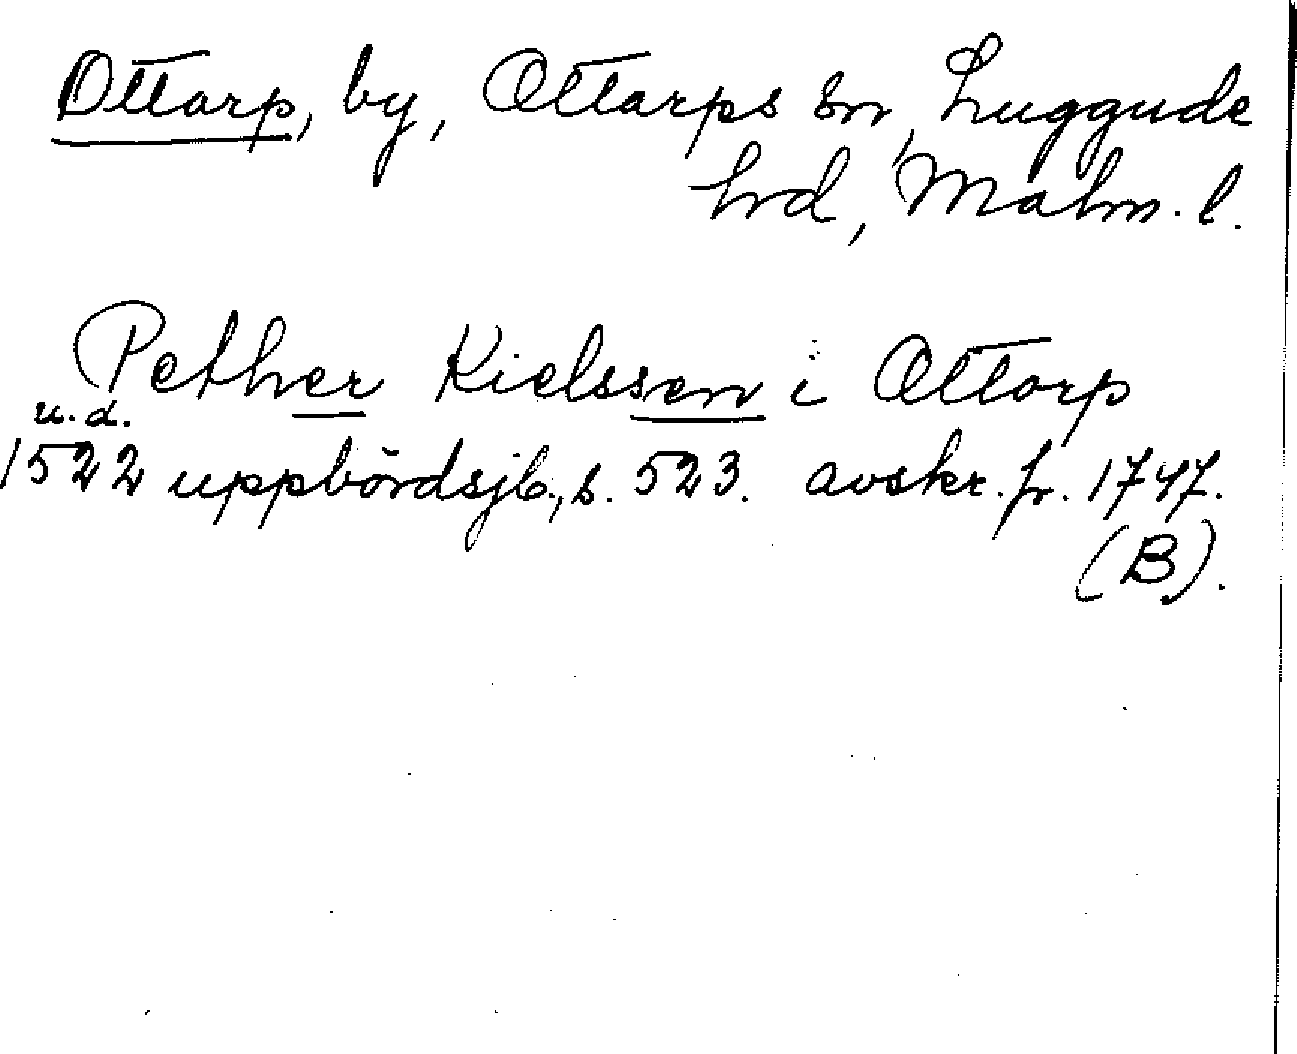 Ottarp, by, Ottarps sn, Luggude
hrd, Malm. l.
Pether Kielssen i Ottarp
u. d.
1522 uppbördsjb., s. 523. avskr. fr. 1747.
(B).